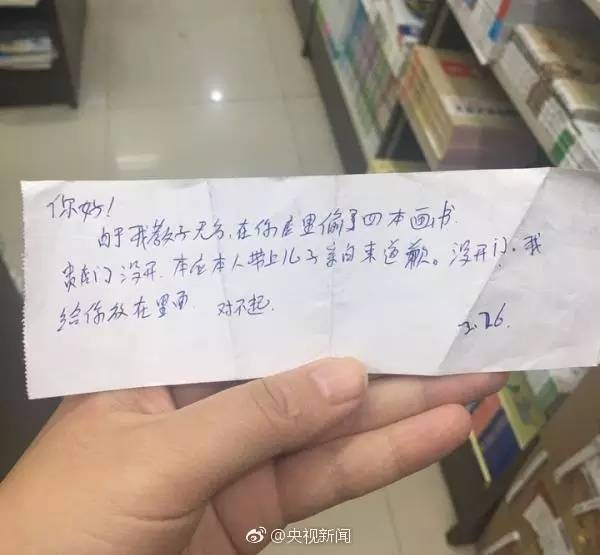 你好!
由于我教子无方,在你店里偷了四本画书.
贵店门没开.本应本人带上儿子亲自来道歉。没开门.我
给你放在里面. 对不起.
3.26.
@央视新闻